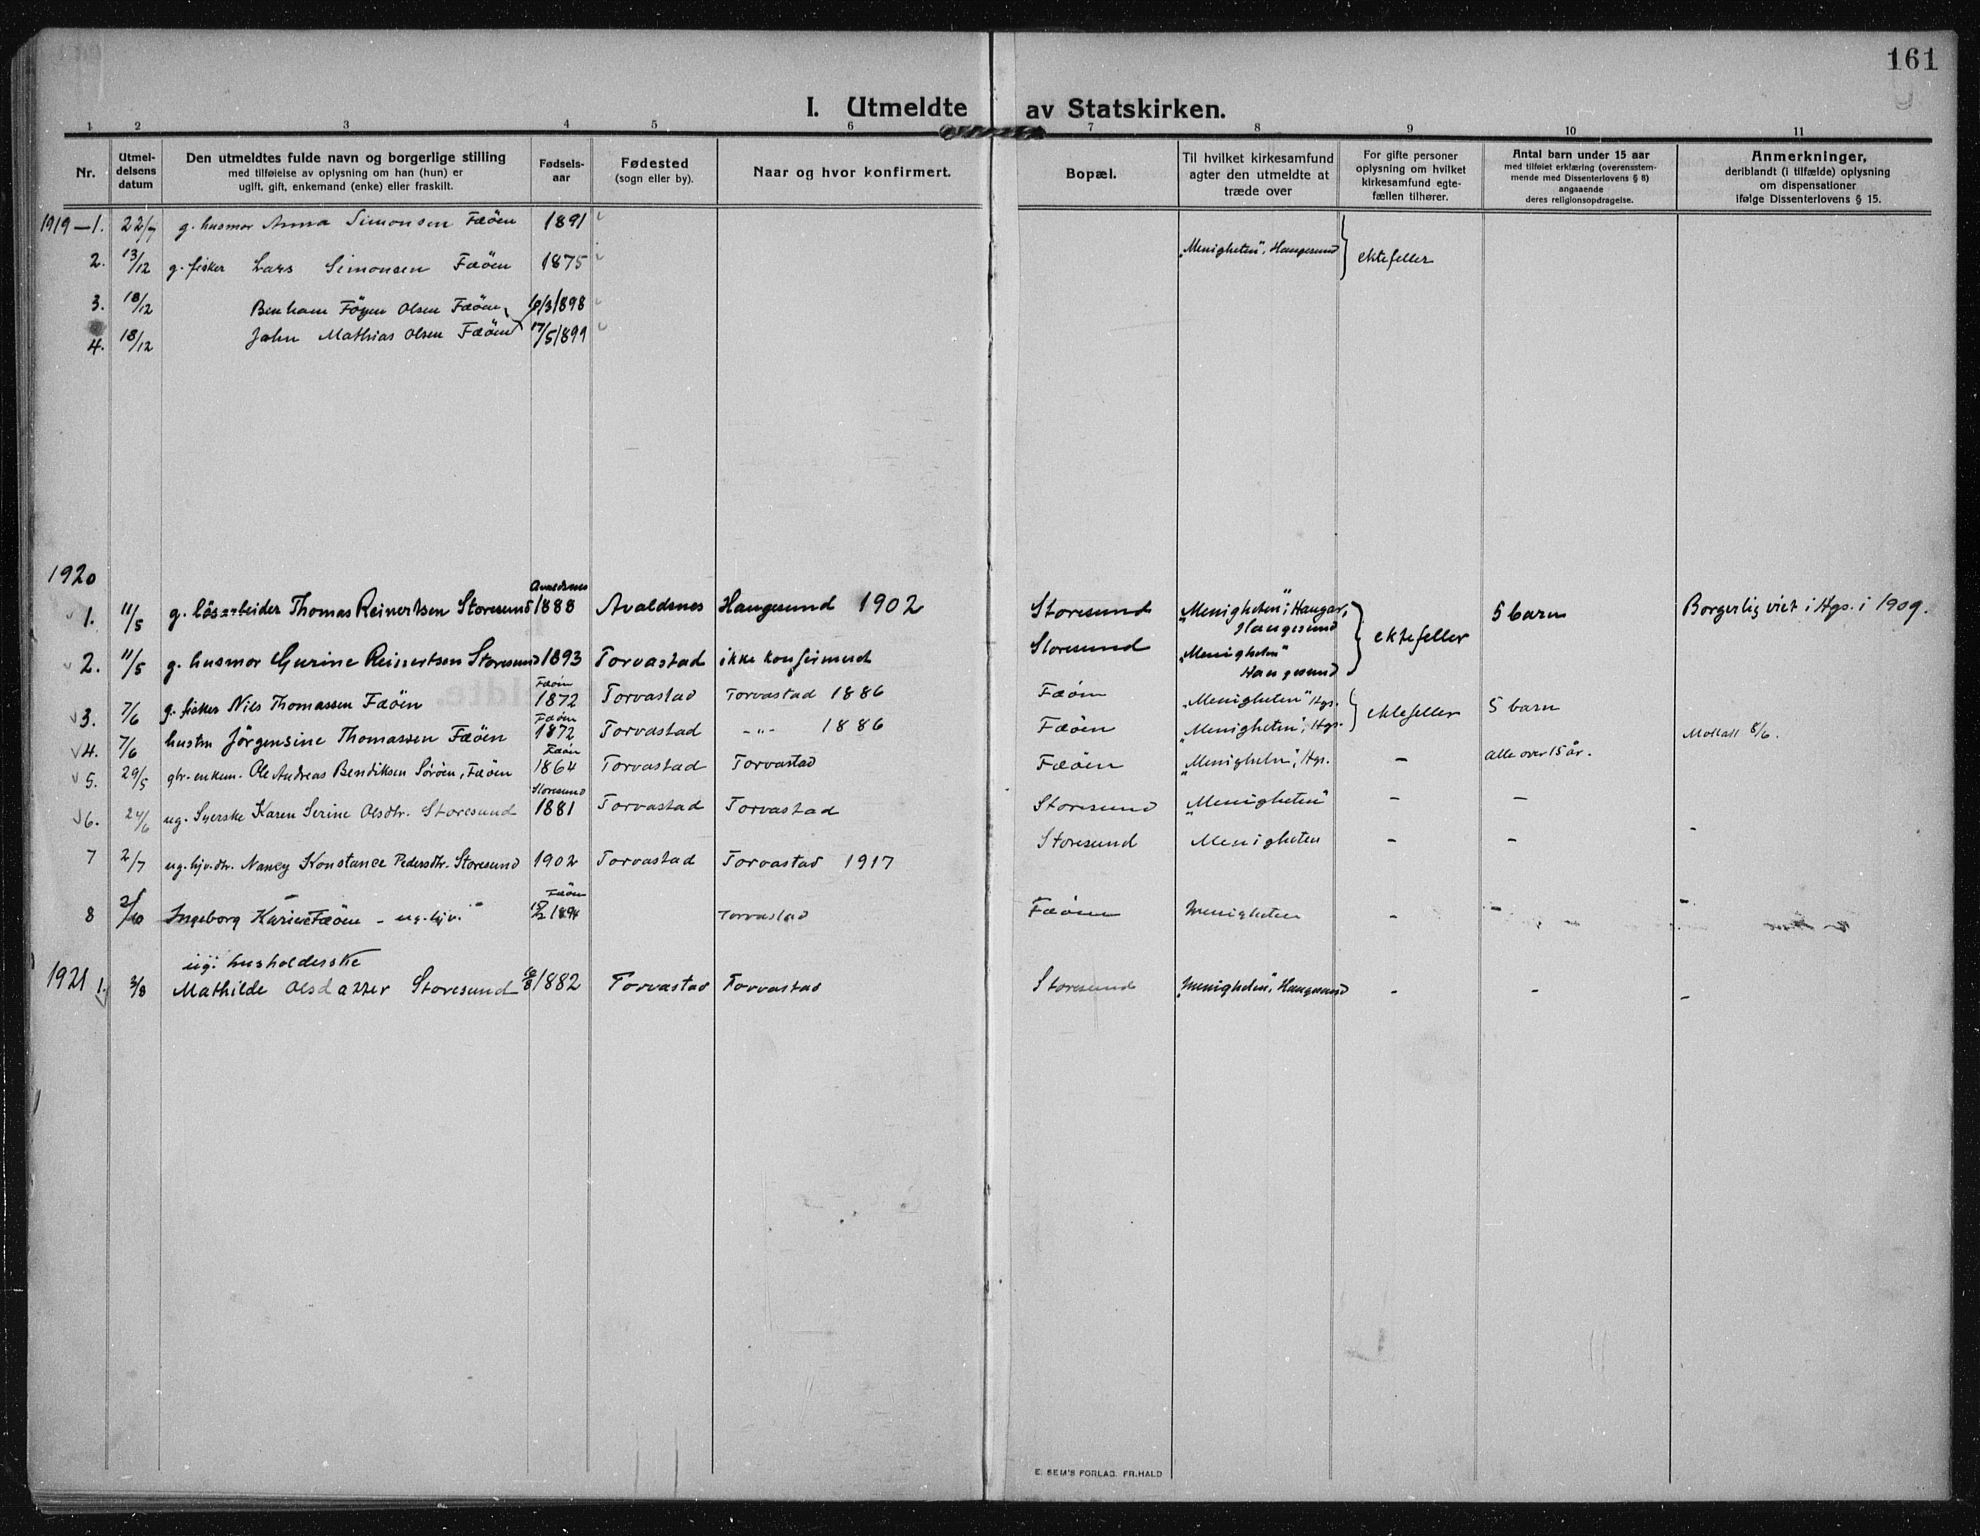 161
I. Utmeldte av Statskirken.
1 2 3 4 5 6 7 8 9 10 11
Nr.
Utmel-
delsens
datum
Den utmeldtes fulde navn og borgerlige stilling
med tilføielse av oplysning om han (hun) er
ugift, gift, enkemand (enke) eller fraskilt.
Fødsels-
aar
Fødested
(sogn eller by).
Naar og hvor konfirmert.
Bopæl.
Til hvilket kirkesamfund
agter den utmeldte at
træde over
For gifte personer
oplysning om hvilket
kirkesamfund egte-
fællen tilhører.
Antal barn under 15 aar
med tilføiet erklæring (overensstem-
mende med Dissenterlovens § 8)
angaaende
deres religionsopdragelse.
Anmerkninger,
deriblandt (i tilfælde) oplysning
om dispensationer
ifølge Dissenterlovens § 15.
1919—1. 22/7 g. husmor Anna Simonsen Fæøen 1891
"Menigheten", Haugesund } ektefeller
2. 13/12 g. fisker Lars Simonsen Fæøen 1875
3. 18/12 Olsen Fæøen
4. 18/12 John Mathias Olsen Fæøen 17/5 1899
1920
Avaldsnes
1. 11/5 g. løsarbeider Thomas Reinertsen Storesund 1888 Avaldsnes Haugesund 1902 Storesund "Menigheten", Haugesund } ektefeller 5 barn Borgerlig viet i Hgs. i 1909.
2. 11/5 g. husmor Gurine Reinertsen Storesund 1893 Torvastad ikke konfirmert Storesund "Menigheten" Haugesund
Fæøen
3. 7/6 g. fisker Nils Thomassen Fæøen 1872 Torvastad Torvastad 1886 Fæøen "Menigheten" Hgs. } ektefeller 5 barn
Fæøen
4. 7/6 hustru Jørgensine Thomassen Fæøen 1872 Torvastad -"- 1886 Fæøen "Menigheten", Hgs. 8/6.
Fæøen
5. 29/5 gbr. enkem. Ole Andreas Bendiksen Sørøen, Fæøen 1864 Torvastad Torvastad Fæøen "Menigheten", Hgs. - alle over 15 år.
Storesund
6. 24/6 ug. Syerske Karen Serine Olsdtr. Storesund 1881 Torvastad Torvastad Storesund "Menigheten" - -
7 2/7 ug. hjv. dtr. Nancy Konstance Pedersdtr. Storesund 1902 Torvastad Torvastad 1917 Storesund Menigheten - - -
Fæøen
8 2/10 Ingeborg Karine Fæøen - ug. hjv. 1894 Torvastad Fæøen Menigheten - - -
ug. husholderske
1921 1. 3/8 Mathilde Olsdatter Storesund 1882 Torvastad Torvastad Storesund "Menigheten", Haugesund - - -
E. SEM'S FORLAG. FR.HALD